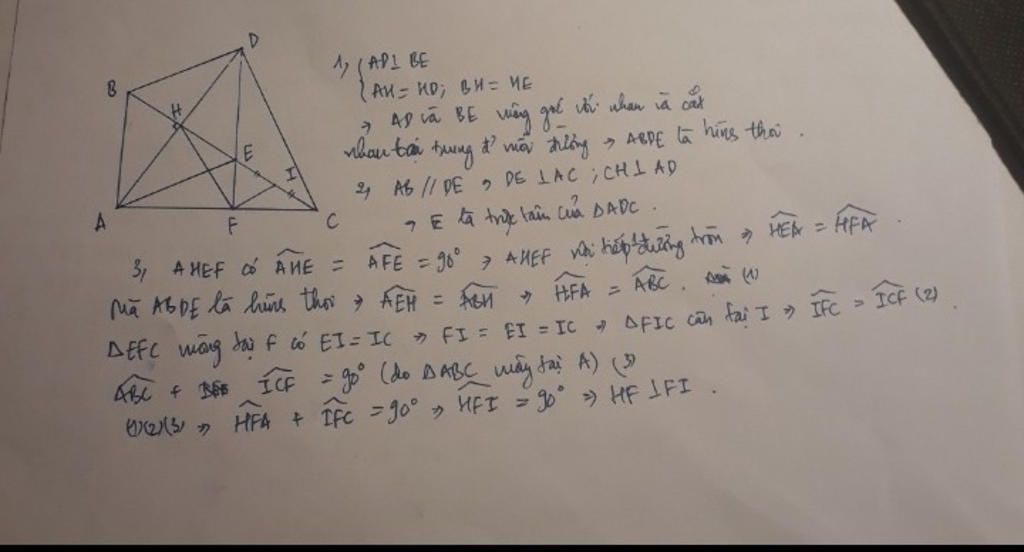 D
B
H
E
I
A
F
C
1, { AD ⊥ BE
AH = HD; BH = HE
→ AD và BE vuông góc với nhau và cắt
nhau tại trung đ' mỗi đường → ABDE là hình thoi.
2, AB // DE → DE ⊥ AC ; CH ⊥ AD
→ E là trực tâm của ΔADC.
3, AHEF có \widehat{AHE} = \widehat{AFE} = 90° → AHEF nội tiếp đường tròn ⇒ \widehat{HEA} = \widehat{HFA}.
Mà ABDE là hình thoi → \widehat{AEH} = \widehat{ABH} ⇒ \widehat{HFA} = \widehat{ABC}. (1)
ΔEFC vuông tại F có EI = IC → FI = EI = IC → ΔFIC cân tại I ⇒ \widehat{IFC} = \widehat{ICF} (2).
\widehat{ABC} + \widehat{ICF} = 90° (do ΔABC vuông tại A) (3)
(1)(2)(3) ⇒ \widehat{HFA} + \widehat{IFC} = 90° ⇒ \widehat{HFI} = 90° ⇒ HF ⊥ FI.